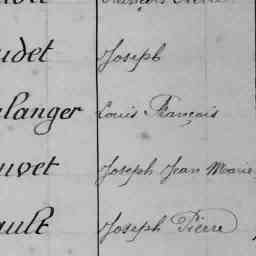 udet Joseph
langer Louis François
uvet Joseph Jean Marie
ault Joseph Pierre